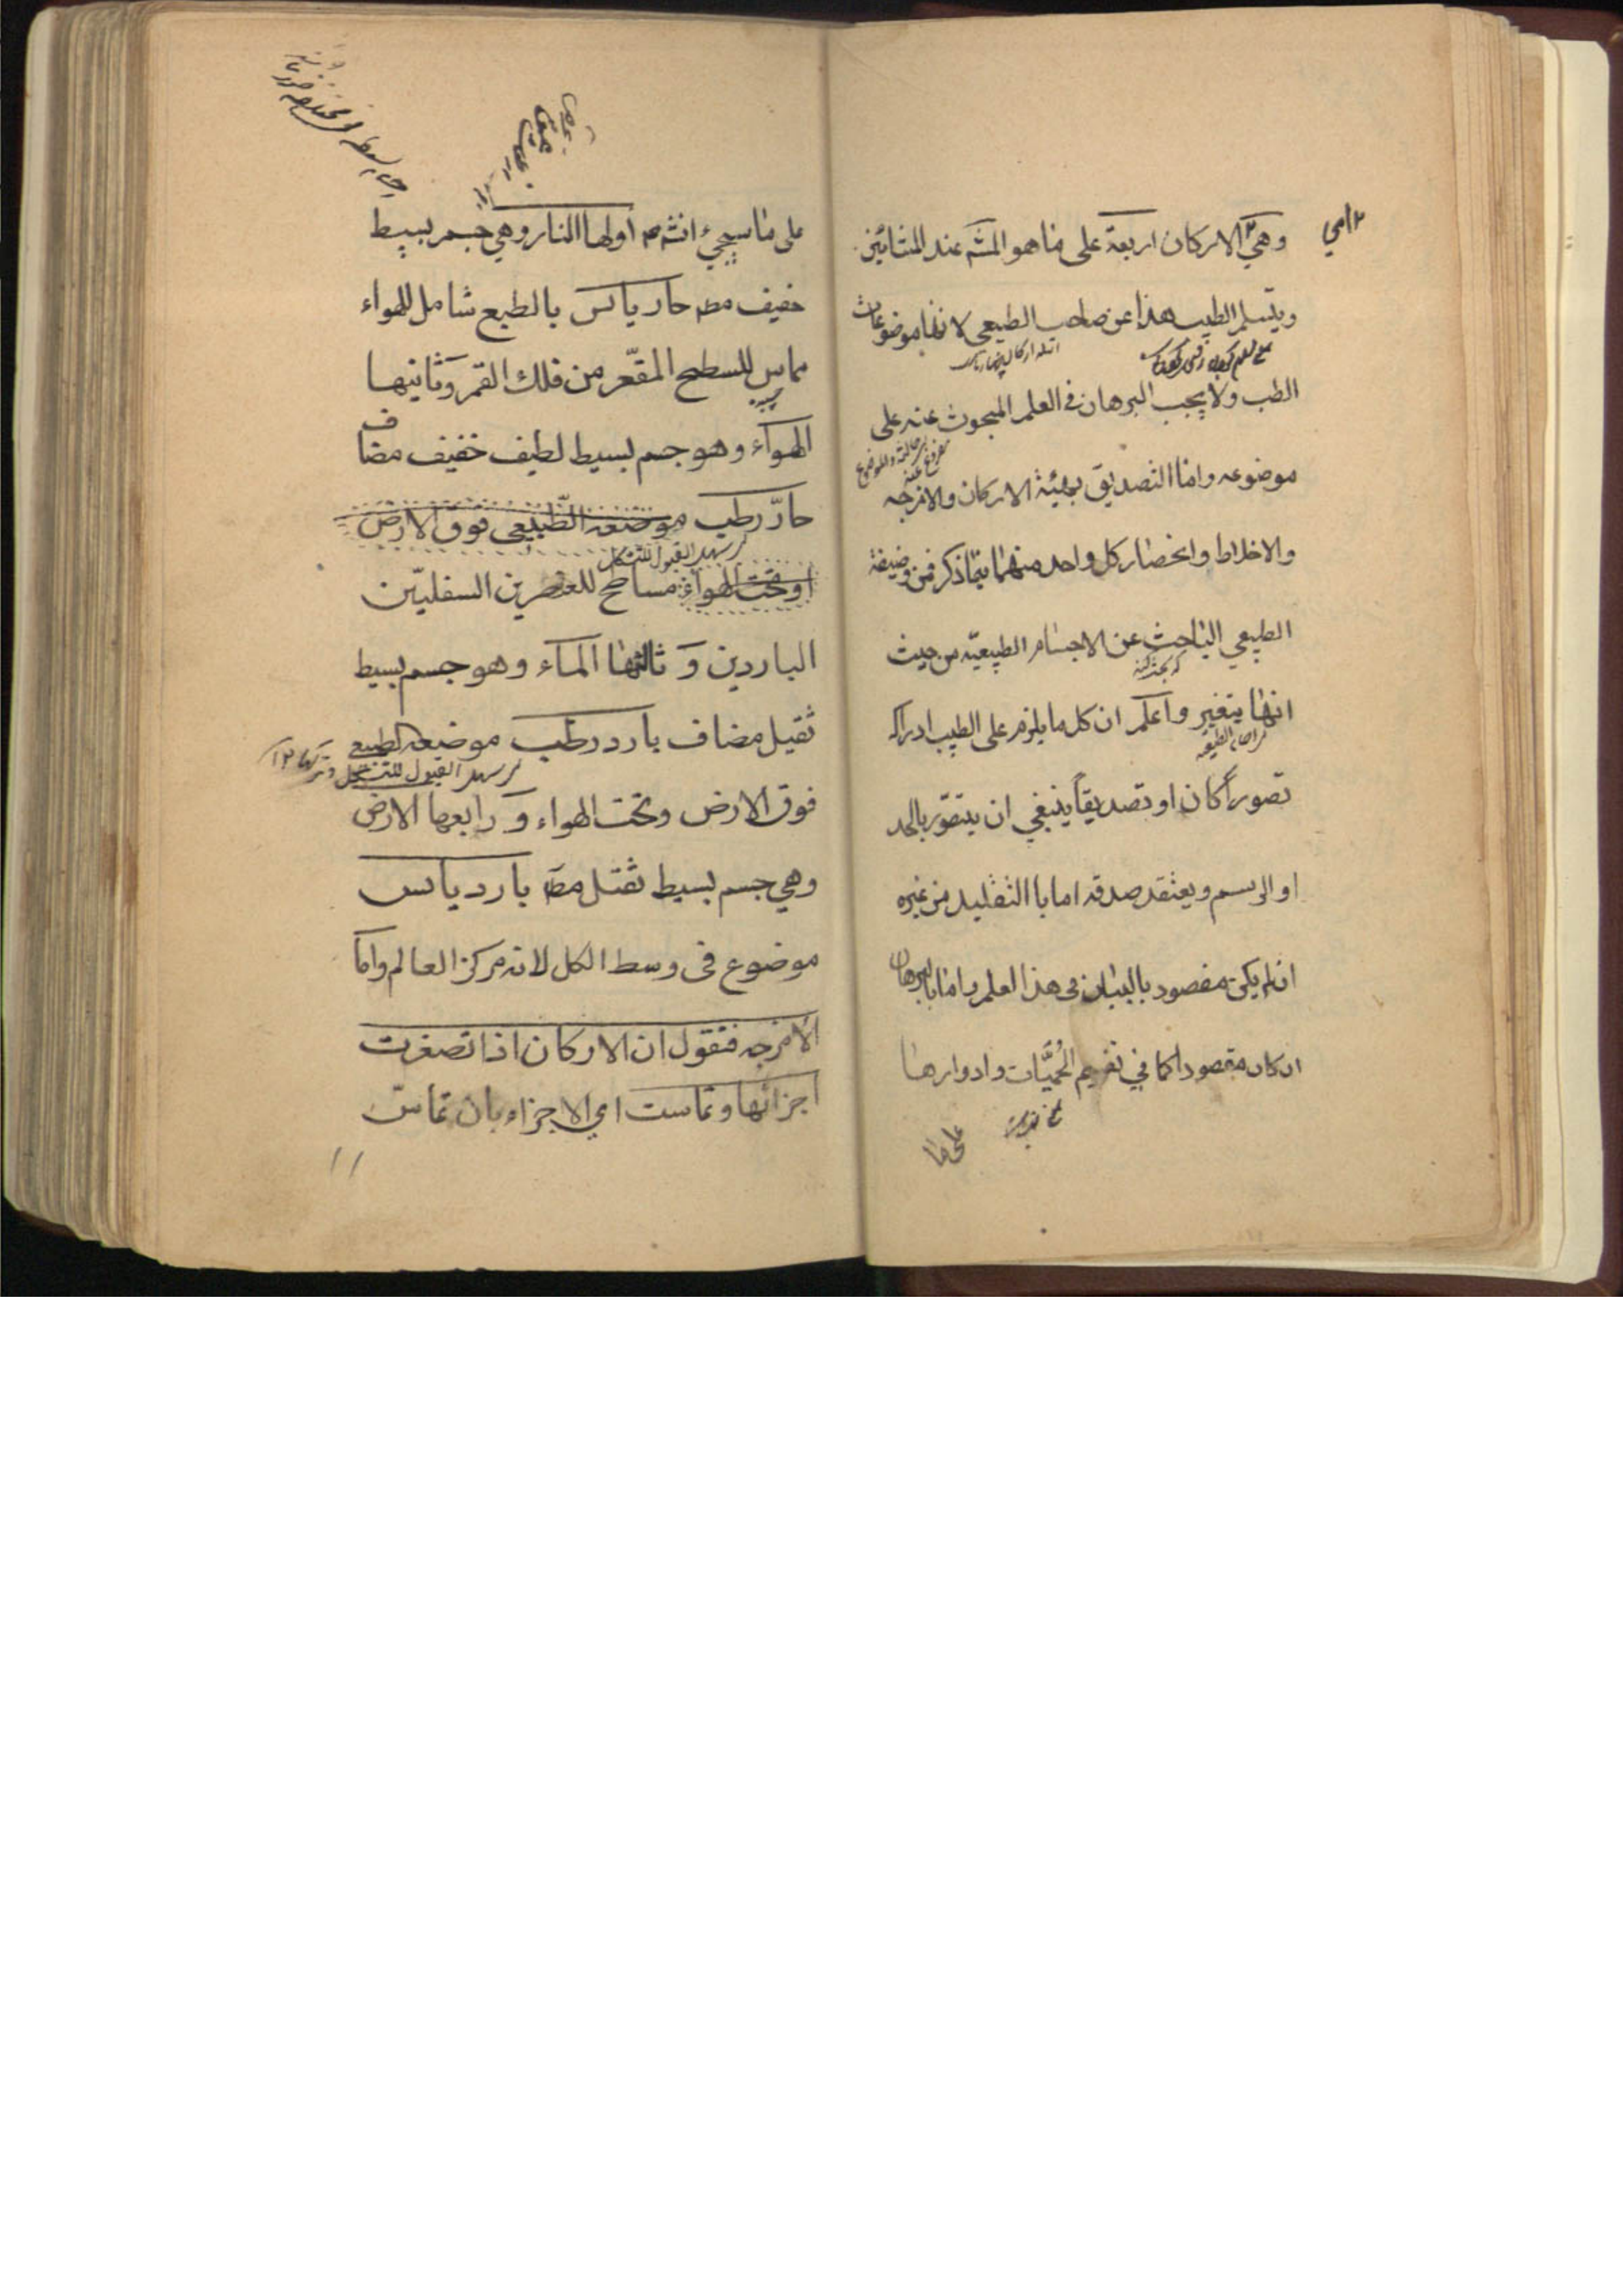 وهي الاركان اربعة على ما هو المشه عند المشائين
ويتسلم الطبيب هذا عن صاحب الطبيعي لانها موضوعات
الطب ولا يجب البرهان في العلم المبحوث عنه على
موضوعه واما التصديق بهلية الاركان والامزجه
والاخلاط وانحصار كل واحد منهما بما ذكر فمن وضيفة
الطبيعي الباحث عن الاجسام الطبيعيّه من حيث
انها يتغير واعلم ان كل ما يلزم على الطبيب ادراكه
تصوراً كان او تصديقاً ينبغي ان يتصوّر بالحد
او الرسم ويعتقد صدقه اما باالتقليد من غيره
ان لم يكن مقصود بالبيان في هذا العلم واما بالبرهان
ان كان مقصودا كما في تقسيم الحُمَّيَات وادوارها
على ما
على ما سيجيء انشه اولها النار وهي جسم بسيط
خفيف مط حار يابس بالطبع شامل للهواء
مماس للسطح المقعّر من فلك القمر وثانيها
الهوآء وهو جسم بسيط لطيف خفيف مضاف
حارّ رطب موضعه الطّبيعي فوق الارض
سهل القبول للتشكل
وتحت الهواء مسامح للعنصرين السفليّين
الباردين وثالثها المآء وهو جسم بسيط
ثقيل مضاف بارد رطب موضعه الطبيعي
سهل القبول للتشكل
فوق الارض وتحت الهواء ورابعها الارض
وهي جسم بسيط ثقيل مط بارد يابس
موضوع في وسط الكل لانه مركز العالم واما
الامزجه فنقول ان الاركان اذا تصغرت
اجزائها وتماست اي الاجزاء بان تماسّ
١١